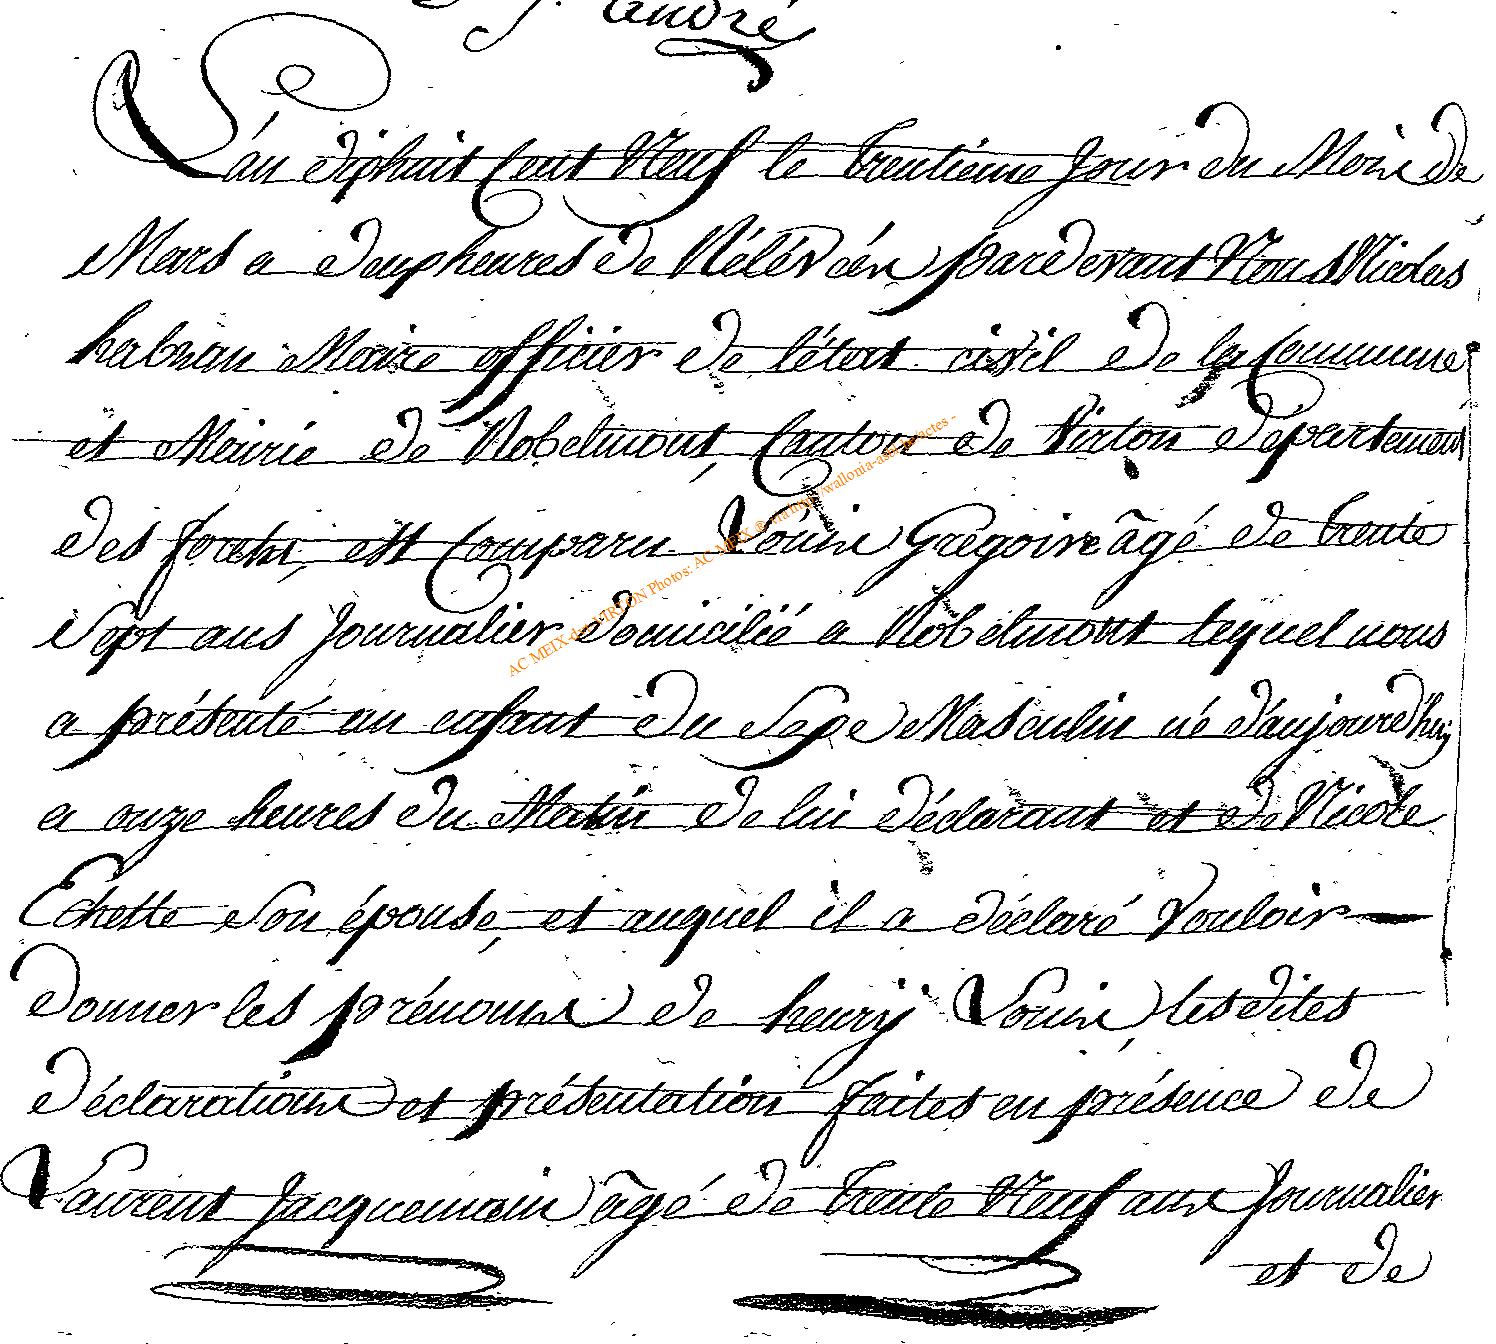 J. André
L'an dixhuit Cent Neuf le trentiéme Jour du Mois de
Mars a deuxheures de Rélévéén pardevant Nous Nicolas
habran Maire officier de l'état civil de la Commune
et Mairie de Robelmont, Canton de Virton département
des forets, est Comparu Louis Grégoire âgé de trente
Sept ans Journalier domicilié a Robelmont lequel nous
a présenté un enfant du Sexe Masculin né d'aujourd'huy
a onze heures du Matin de lui déclarant et de Nicole
Echette Son épouse, et auquel il a déclaré Vouloir
donner les prénoms de henry Louis, lesdites
déclarations et présentation faites en présence de
Laurent Jacquemain âgé de trente Neuf ans Journalier
et de
AC MEIX-dvt-VIRTON Photos: AC MEIX